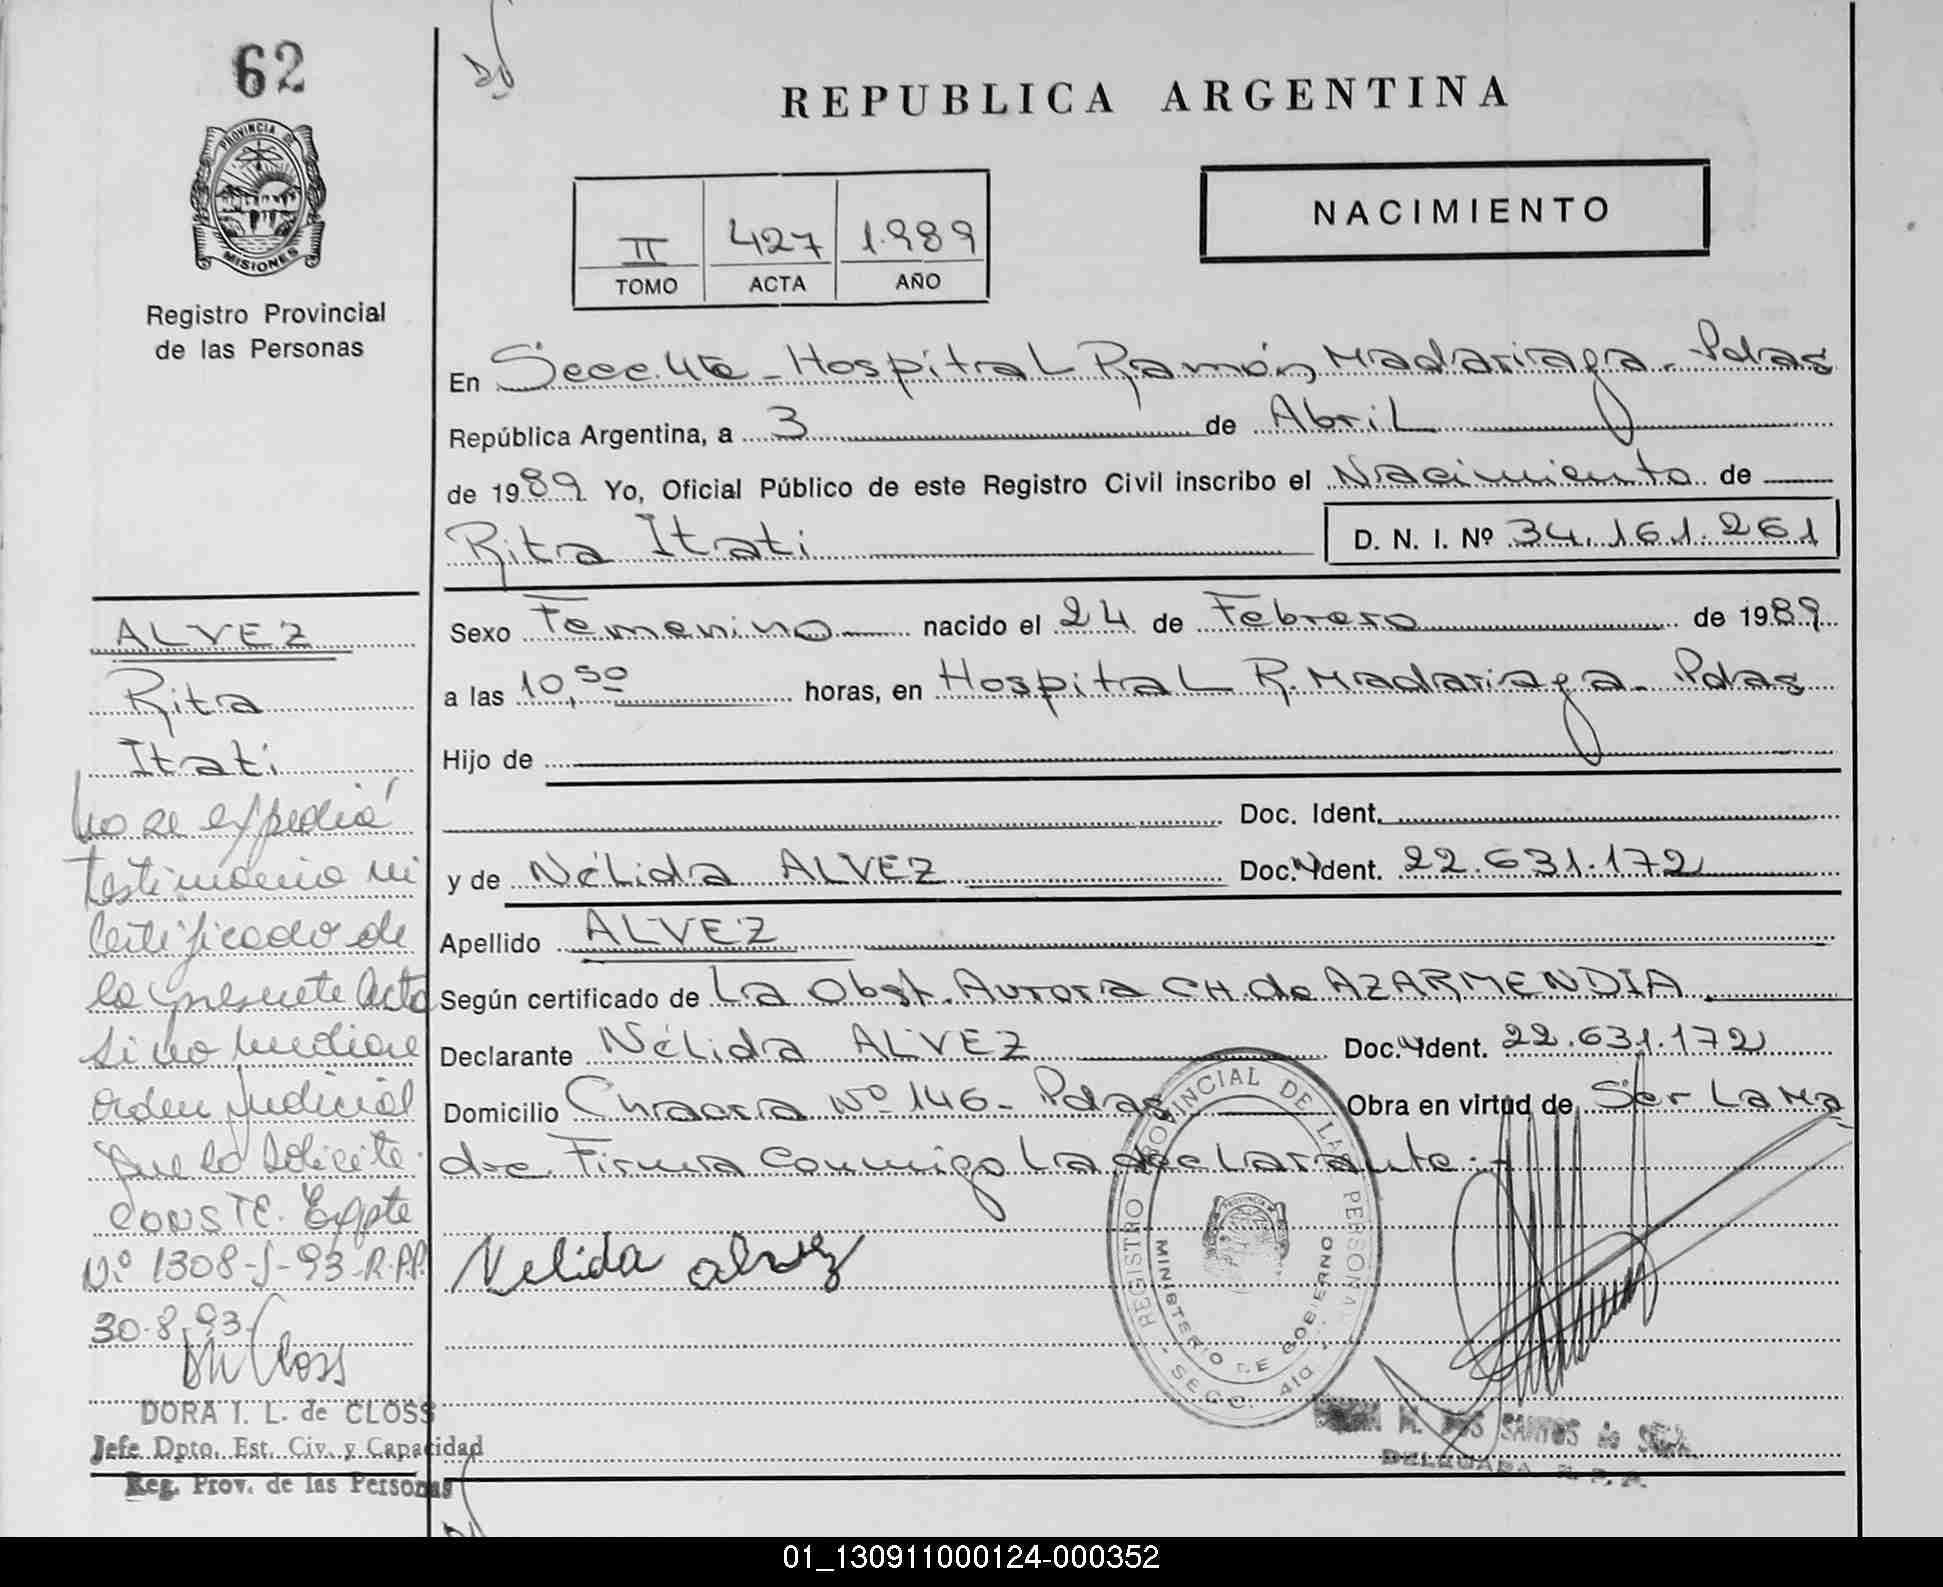 62
PROVINCIA DE
MISIONES
Registro Provincial
de las Personas
REPUBLICA ARGENTINA
II 427 1.989
TOMO ACTA AÑO
NACIMIENTO
En Secc. 4ta - Hospital Ramón Madariaga - Pdas
República Argentina, a 3 de Abril
de 1989 Yo, Oficial Público de este Registro Civil inscribo el Nacimiento de
Rita Itati
D. N. I. Nº 34.161.261
Sexo Femenino nacido el 24 de Febrero de 1989
a las 10,50 horas, en Hospital R. Madariaga - Pdas
Hijo de
Doc. Ident.
y de Nélida ALVEZ Doc. Ident. 22.631.172
Apellido ALVEZ
Según certificado de La Obst. Aurora CH. de AZARMENDIA
Declarante Nélida ALVEZ Doc. Ident. 22.631.172
Domicilio Nº 146 - Pdas Obra en virtud de Ser La Ma
dre. Firma Conmigo La declarante.-
Nelida alvez
REGISTRO PROVINCIAL DE LAS PERSONAS
MINISTERIO DE GOBIERNO
- SECC. 4ta -
M. DOS SANTOS de
DELEGADA R. P. P.
ALVEZ
Rita
Itati
No se expedirá
testimonio ni
certificado de
la presente Acta
si no mediare
orden judicial
que lo solicite.
CONSTE. Expte
Nº 1308-J-93-R.P.P.
30.8.93
DORA I. L. de CLOSS
Jefe Dpto. Est. Civ. y Capacidad
Reg. Prov. de las Personas
01_130911000124-000352